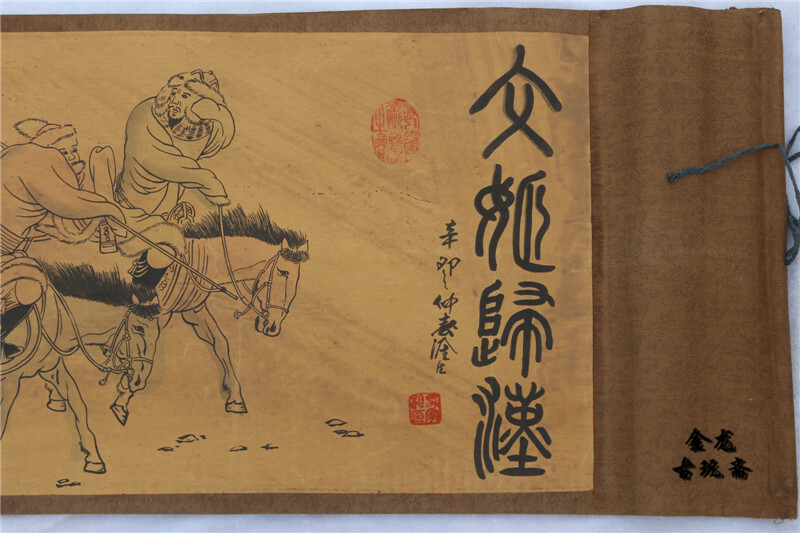 文姬歸漢
辛卯仲春
金龙
古琓斋